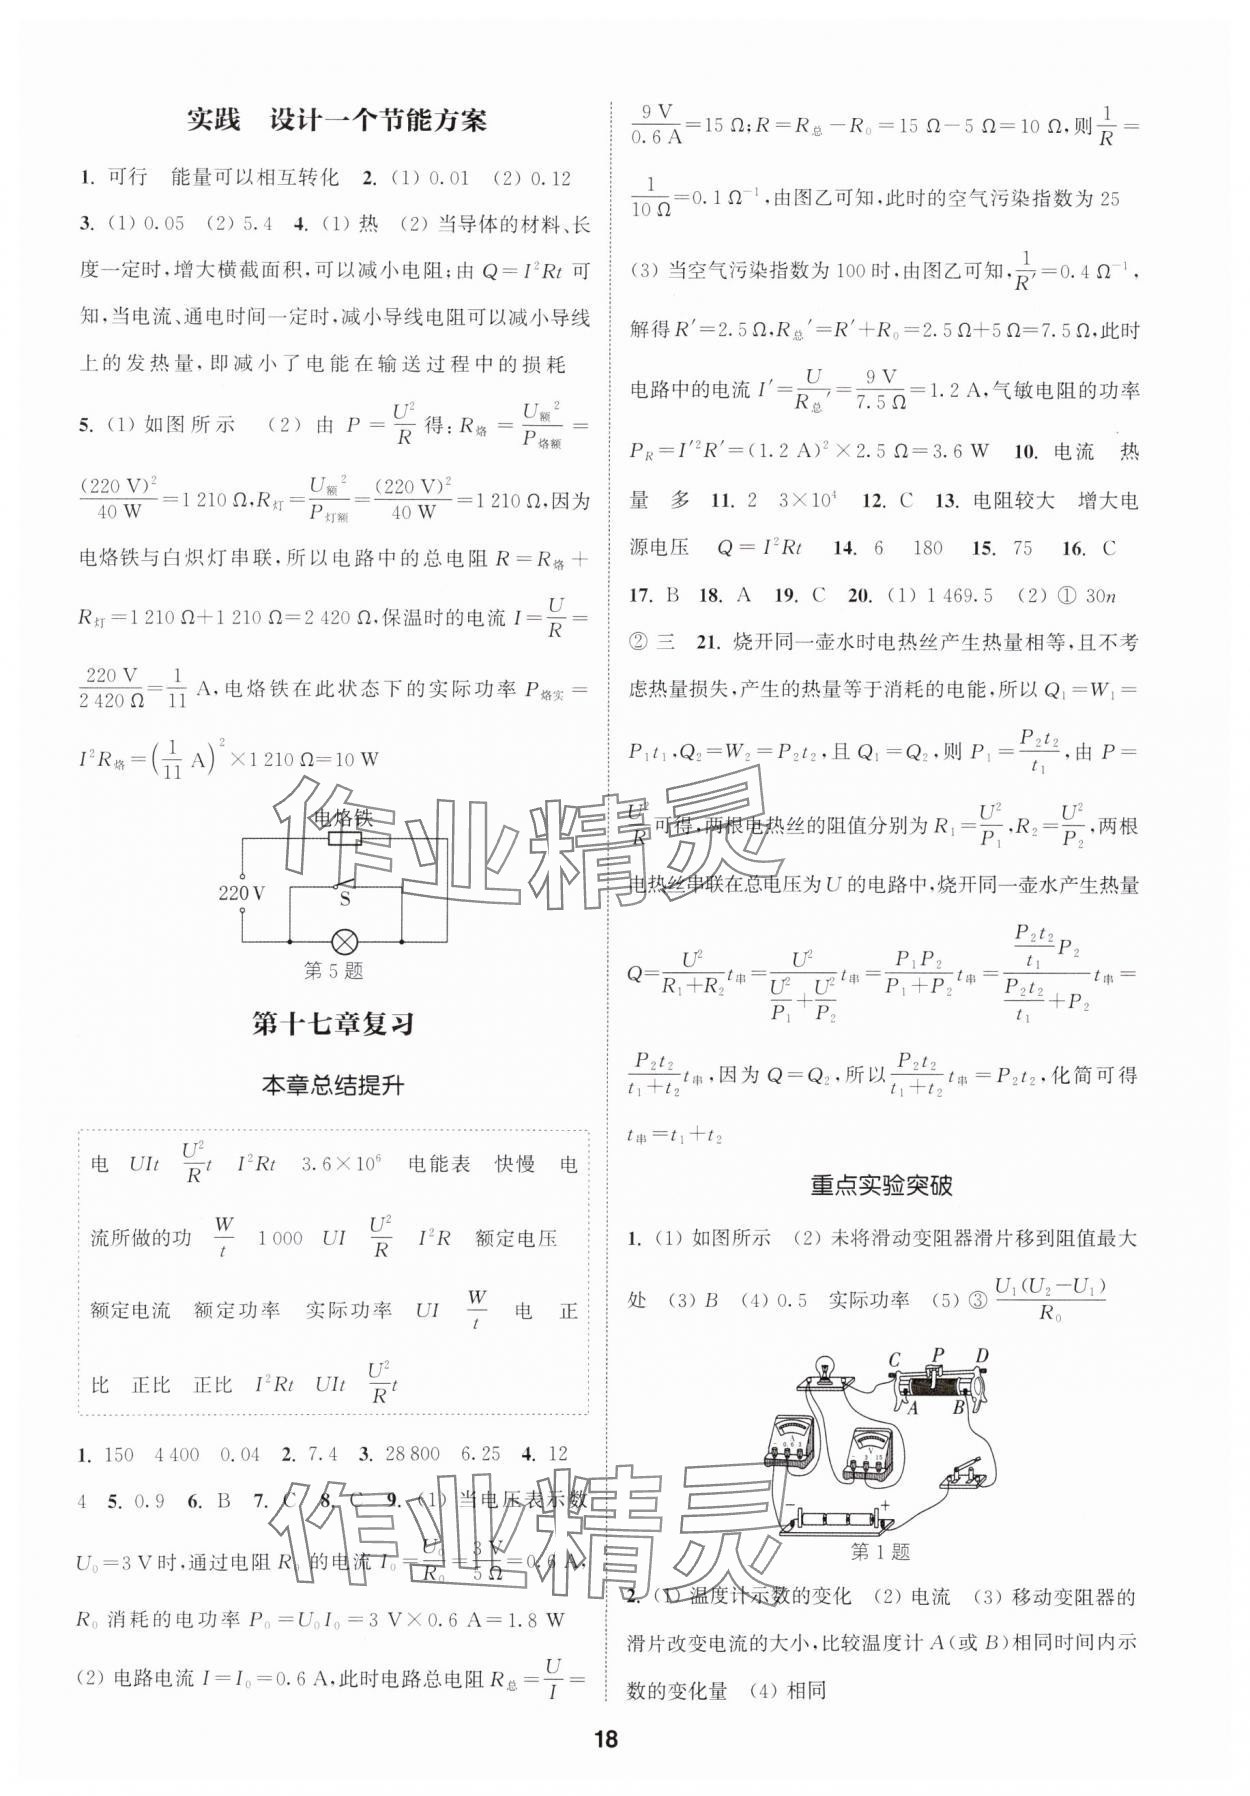 实践　设计一个节能方案
1. 可行　能量可以相互转化　2. (1) 0.01　(2) 0.12
3. (1) 0.05　(2) 5.4　4. (1) 热　(2) 当导体的材料、长
度一定时,增大横截面积,可以减小电阻;由 Q=I²Rt 可
知,当电流、通电时间一定时,减小导线电阻可以减小导线
上的发热量,即减小了电能在输送过程中的损耗
5. (1) 如图所示　(2) 由 P=U²/R 得:R烙=U额²/P烙额=
(220 V)²/40 W=1 210 Ω,R灯=U额²/P灯额=(220 V)²/40 W=1 210 Ω,因为
电烙铁与白炽灯串联,所以电路中的总电阻 R=R烙+
R灯=1 210 Ω+1 210 Ω=2 420 Ω,保温时的电流 I=U/R=
220 V/2 420 Ω=1/11 A,电烙铁在此状态下的实际功率 P烙实=
I²R烙=(1/11 A)²×1 210 Ω=10 W
电烙铁
220 V
S
第 5 题
第十七章复习
本章总结提升
电　UIt　U²/R t　I²Rt　3.6×10⁶　电能表　快慢　电
流所做的功　W/t　1 000　UI　U²/R　I²R　额定电压
额定电流　额定功率　实际功率　UI　W/t　电　正
比　正比　正比　I²Rt　UIt　U²/R t
1. 150　4 400　0.04　2. 7.4　3. 28 800　6.25　4. 12
4　5. 0.9　6. B　7. C　8. C　9. (1) 当电压表示数
U₀=3 V时,通过电阻 R₀ 的电流 I₀=U₀/R₀=3 V/5 Ω=0.6 A,
R₀ 消耗的电功率 P₀=U₀I₀=3 V×0.6 A=1.8 W
(2) 电路电流 I=I₀=0.6 A,此时电路总电阻 R总=U/I=
9 V/0.6 A=15 Ω;R=R总-R₀=15 Ω-5 Ω=10 Ω,则 1/R=
1/10 Ω=0.1 Ω⁻¹,由图乙可知,此时的空气污染指数为 25
(3) 当空气污染指数为 100 时,由图乙可知,1/R′=0.4 Ω⁻¹,
解得 R′=2.5 Ω,R总′=R′+R₀=2.5 Ω+5 Ω=7.5 Ω,此时
电路中的电流 I′=U/R总′=9 V/7.5 Ω=1.2 A,气敏电阻的功率
P_R=I′²R′=(1.2 A)²×2.5 Ω=3.6 W　10. 电流　热
量　多　11. 2　3×10⁴　12. C　13. 电阻较大　增大电
源电压　Q=I²Rt　14. 6　180　15. 75　16. C
17. B　18. A　19. C　20. (1) 1 469.5　(2) ① 30n
② 三　21. 烧开同一壶水时电热丝产生热量相等,且不考
虑热量损失,产生的热量等于消耗的电能,所以 Q₁=W₁=
P₁t₁,Q₂=W₂=P₂t₂,且 Q₁=Q₂,则 P₁=P₂t₂/t₁,由 P=
U²/R可得,两根电热丝的阻值分别为 R₁=U²/P₁,R₂=U²/P₂,两根
电热丝串联在总电压为 U 的电路中,烧开同一壶水产生热量
Q=U²/(R₁+R₂) t串=U²/(U²/P₁+U²/P₂) t串=P₁P₂/(P₁+P₂) t串=(P₂t₂/t₁ P₂)/(P₂t₂/t₁+P₂) t串=
P₂t₂/(t₁+t₂) t串,因为 Q=Q₂,所以 P₂t₂/(t₁+t₂) t串=P₂t₂,化简可得
t串=t₁+t₂
重点实验突破
1. (1) 如图所示　(2) 未将滑动变阻器滑片移到阻值最大
处　(3) B　(4) 0.5　实际功率　(5) ③ U₁(U₂-U₁)/R₀
C P D
A B
A
0.6 3
V
3 15
- +
第 1 题
2. (1) 温度计示数的变化　(2) 电流　(3) 移动变阻器的
滑片改变电流的大小,比较温度计 A(或 B)相同时间内示
数的变化量　(4) 相同
18
作业精灵
作业精灵